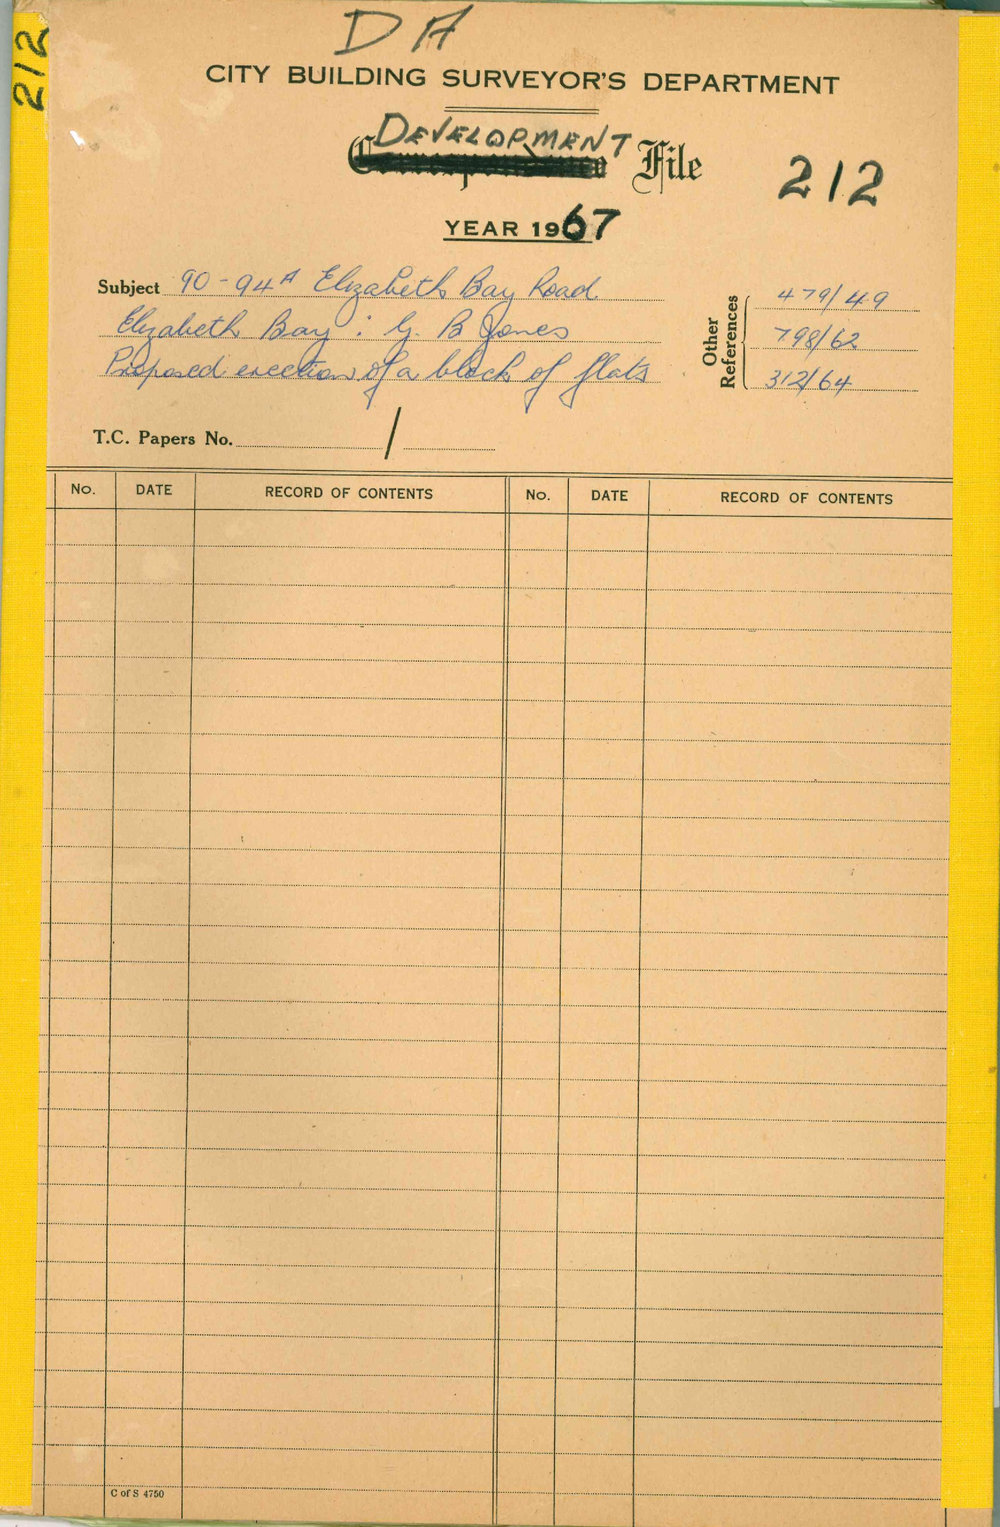 212
D A
CITY BUILDING SURVEYOR'S DEPARTMENT
DEVELOPMENT
Correspondence File
212
YEAR 1967
Subject 90-94A Elizabeth Bay Road
Elizabeth Bay : G. B Jones
Proposed erection of a block of flats
Other References
479/49
798/62
312/64
T.C. Papers No. /
No. DATE RECORD OF CONTENTS No. DATE RECORD OF CONTENTS
C of S 4750